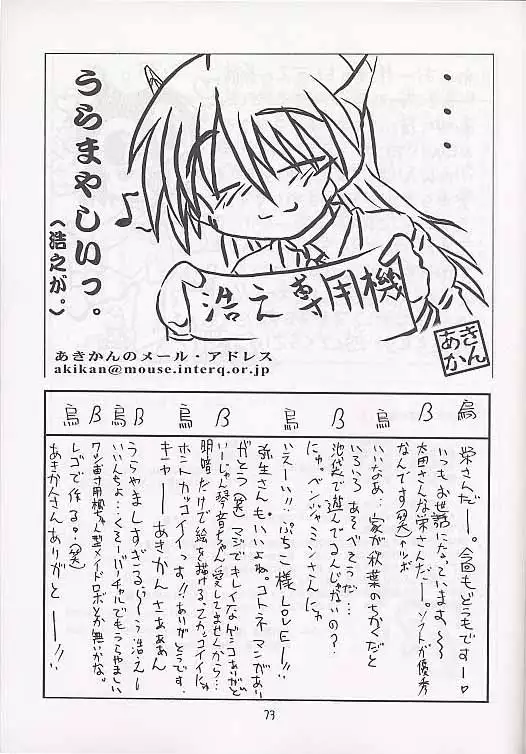 うらまやしいっ。
(浩之が。)
浩之専用機
あきかん
あきかんのメール・アドレス
akikan@mouse.interq.or.jp
烏 栄さんだー。今回もどうもですー♡
β いつもお世話になっています、〜〜
太田さんな栄さんだー。ソイトが優秀
なんです(笑)←ツボ
烏 いいなあ…家が秋葉のちかくだと
いろいろあそべそうだ…
β 池袋で遊んでるんじゃないの?
にゅ。ベンジャミンさんにゃ
烏 いえーい!!ぷちこ様LOVEー!!
弥生さんもいいよね。コトネマンがあり
β がとう(笑)マジでキレイなゲンコありがと
いーじゃん琴音ちゃん愛してませんから…
烏 明暗だけで絵を描けるってカッコイイにゃ
ホントカッコイイっす!!ありがとうです。
β キャーーあきかんさぁぁぁん
烏 うらやましすぎるぅ〜う浩之ー
いいんちょ…くそーバーチャルでもうらやましい
β ワシ専用 メイドロボとか無いかな。
烏 レゴで作る?(笑)
あきかんさんありがとーー!!
73